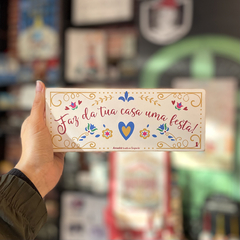 Faz da tua casa uma festa!